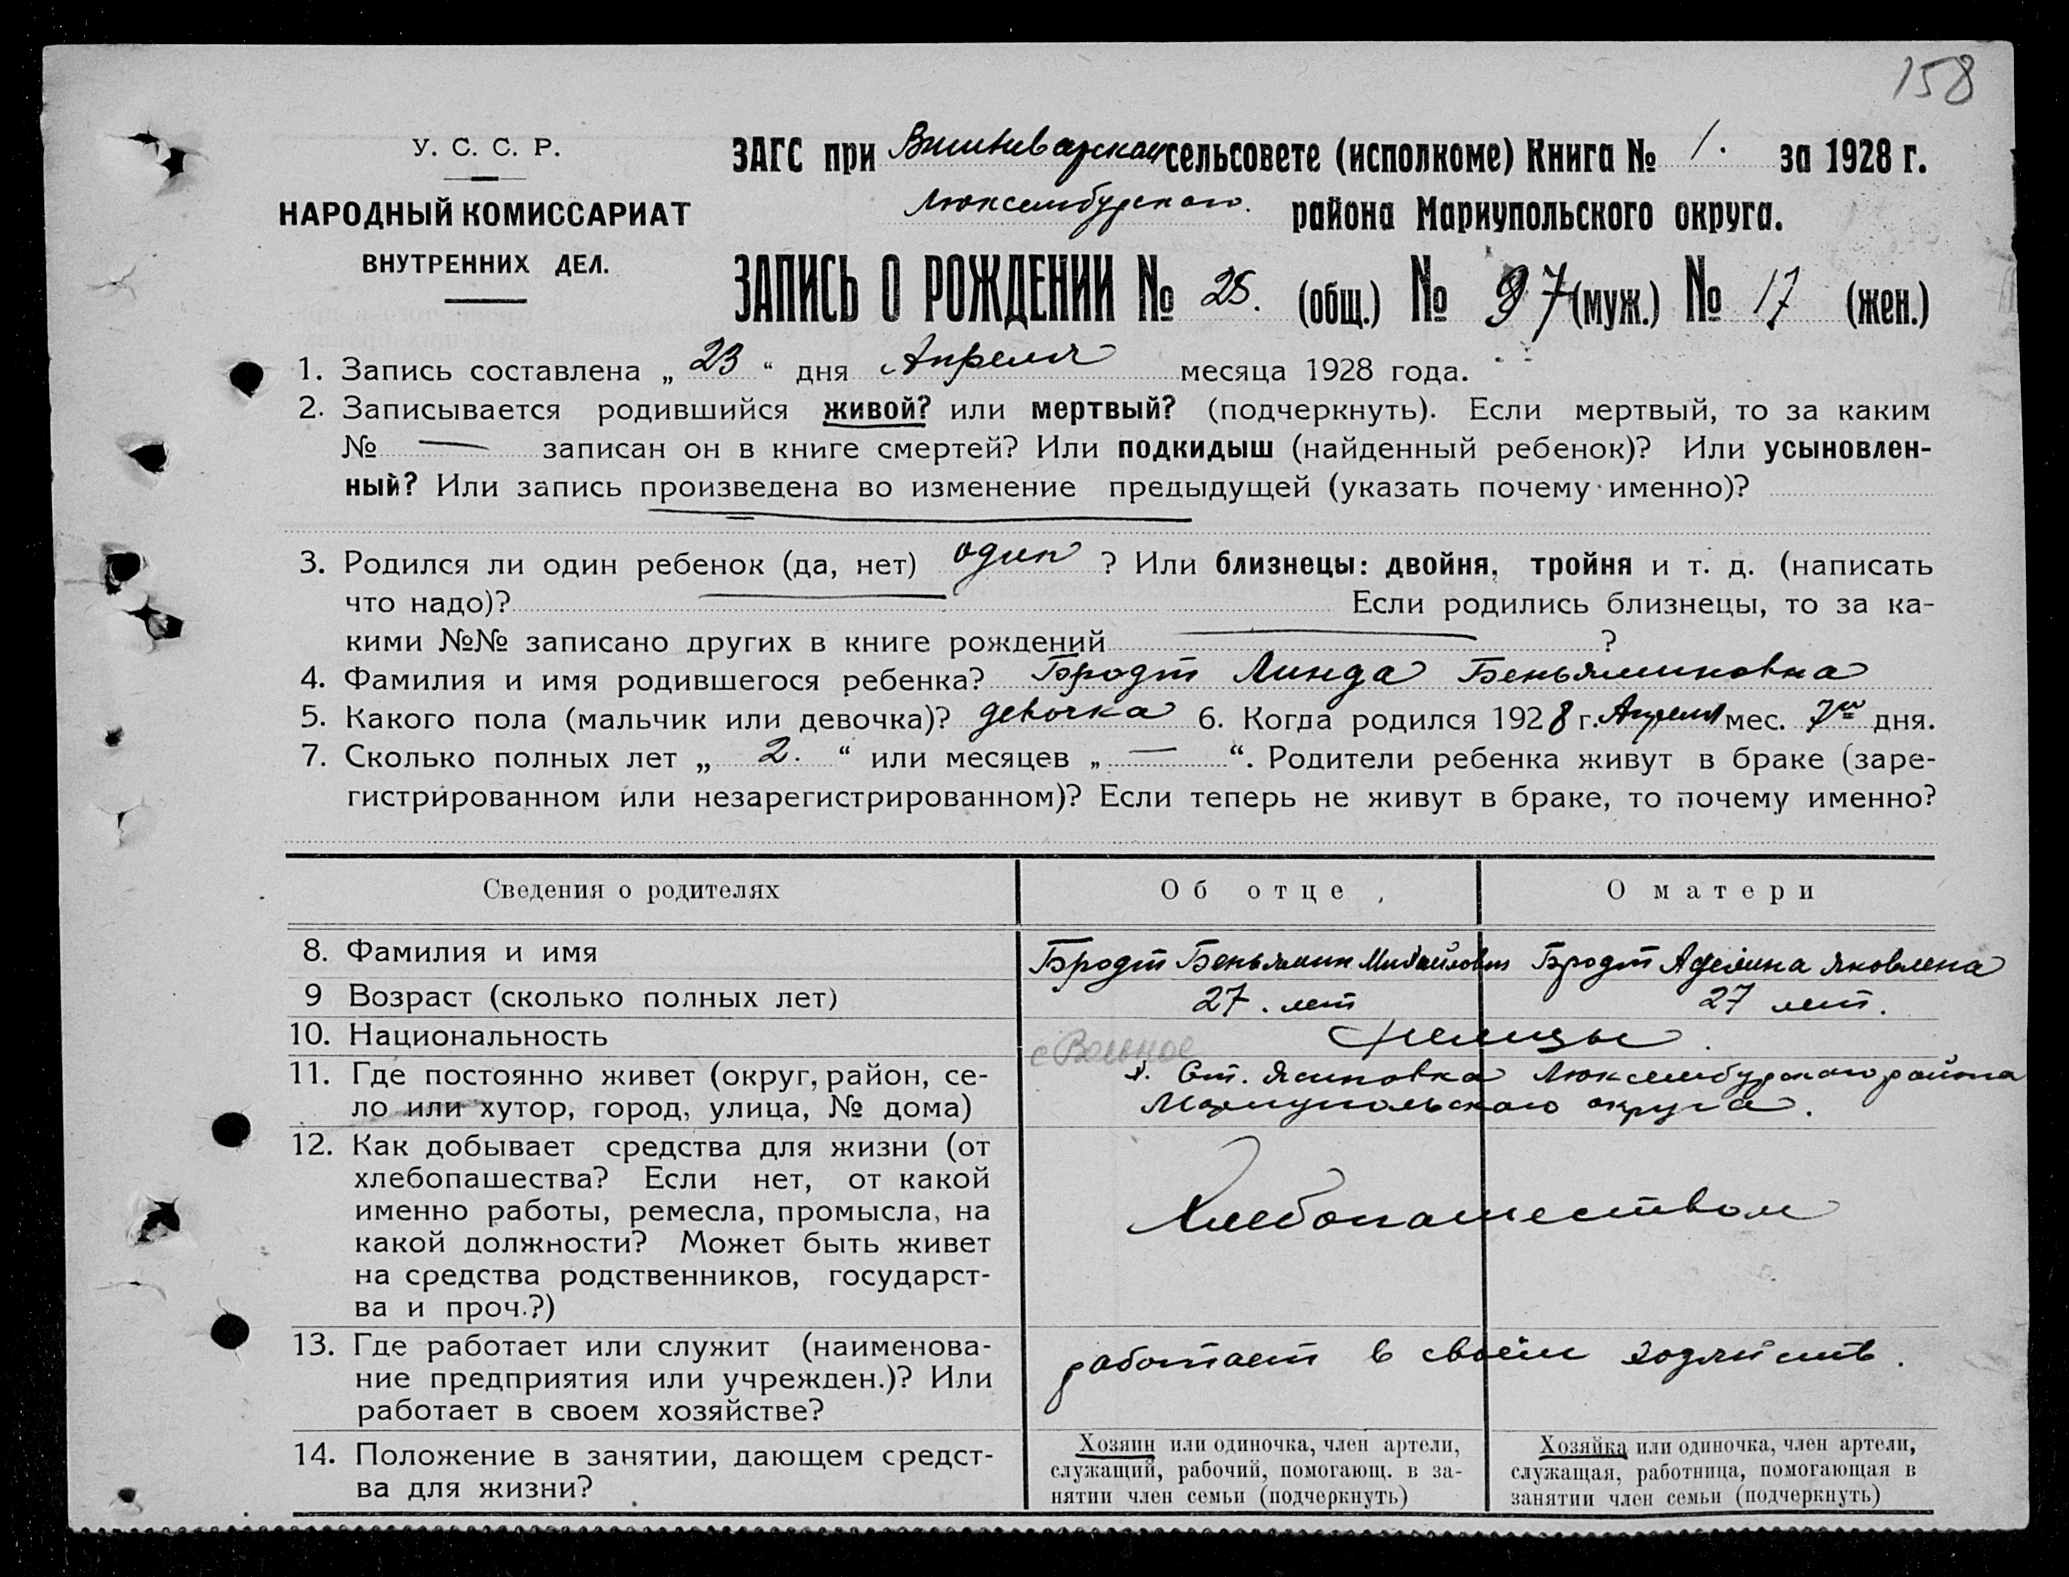 158
У. С. С. Р.
НАРОДНЫЙ КОМИССАРИАТ
ВНУТРЕННИХ ДЕЛ.
ЗАГС при сельсовете (исполкоме) Книга № 1. за 1928 г.
Люксембургского района Мариупольского округа.
ЗАПИСЬ О РОЖДЕНИИ № 25. (общ.) № (муж.) № 17 (жен.)
1. Запись составлена „ 23 “ дня Апреля месяца 1928 года.
2. Записывается родившийся живой? или мертвый? (подчеркнуть). Если мертвый, то за каким
№ — записан он в книге смертей? Или подкидыш (найденный ребенок)? Или усыновлен-
ный? Или запись произведена во изменение предыдущей (указать почему именно)?
3. Родился ли один ребенок (да, нет) один ? Или близнецы: двойня, тройня и т. д. (написать
что надо)? — Если родились близнецы, то за ка-
кими №№ записано других в книге рождений — ?
4. Фамилия и имя родившегося ребенка? Бродт Линда Беньяминовна
5. Какого пола (мальчик или девочка)? девочка 6. Когда родился 1928 г. Апреля мес. 7го дня.
7. Сколько полных лет „ 2. “ или месяцев „ — “. Родители ребенка живут в браке (заре-
гистрированном или незарегистрированном)? Если теперь не живут в браке, то почему именно?
Сведения о родителях Об отце, О матери
8. Фамилия и имя Бродт Беньямин Михайлович Бродт Аделина Яковлевна
9 Возраст (сколько полных лет) 27. лет 27 лет.
10. Национальность немцы.
с Вольное
11. Где постоянно живет (округ, район, се- Ст. Ясиновка Люксембургского района
ло или хутор, город, улица, № дома) Мариупольского округа.
12. Как добывает средства для жизни (от
хлебопашества? Если нет, от какой
именно работы, ремесла, промысла, на
какой должности? Может быть живет
на средства родственников, государст-
ва и проч.?)
Хлебопашеством
13. Где работает или служит (наименова-
ние предприятия или учрежден.)? Или
работает в своем хозяйстве?
работает в своем хозяйств.
14. Положение в занятии, дающем средст-
ва для жизни?
Хозяин или одиночка, член артели,
служащий, рабочий, помогающ. в за-
нятии член семьи (подчеркнуть)
Хозяйка или одиночка, член артели,
служащая, работница, помогающая в
занятии член семьи (подчеркнуть)